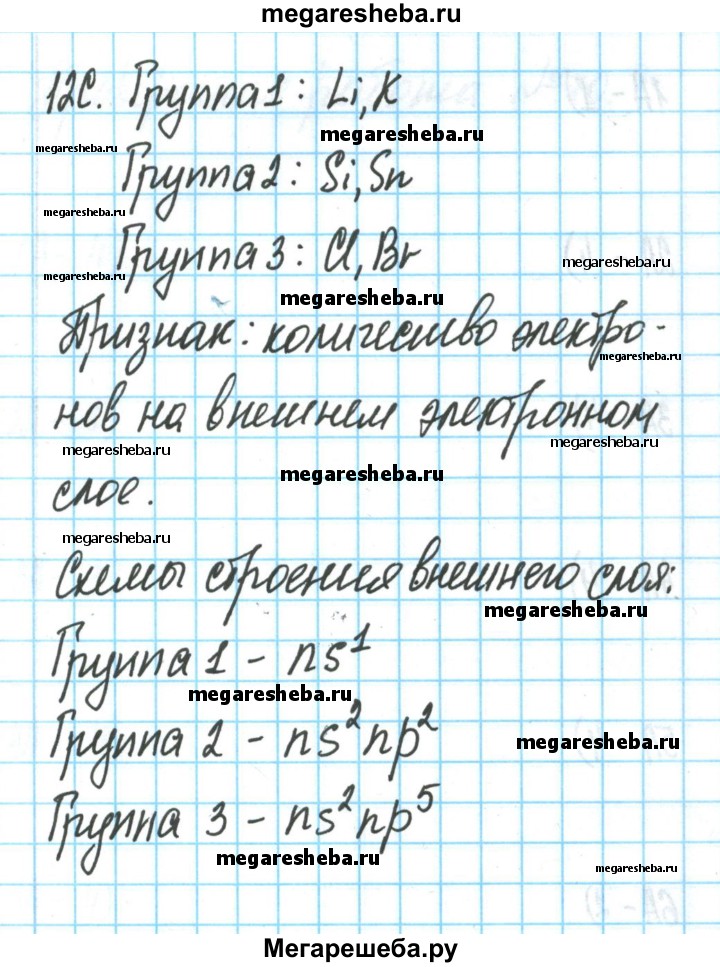 megaresheba.ru
12С. Группа 1: Li, K
megaresheba.ru
megaresheba.ru
Группа 2: Si, Sn
megaresheba.ru
Группа 3: Cl, Br
megaresheba.ru
megaresheba.ru
megaresheba.ru
Признак: количество электро-
megaresheba.ru
нов на внешнем электронном
megaresheba.ru
megaresheba.ru
megaresheba.ru
слое.
megaresheba.ru
Схемы строения внешнего слоя:
megaresheba.ru
Группа 1 - ns¹
megaresheba.ru
Группа 2 - ns²np²
megaresheba.ru
Группа 3 - ns²np⁵
megaresheba.ru
megaresheba.ru
Мегарешеба.ру